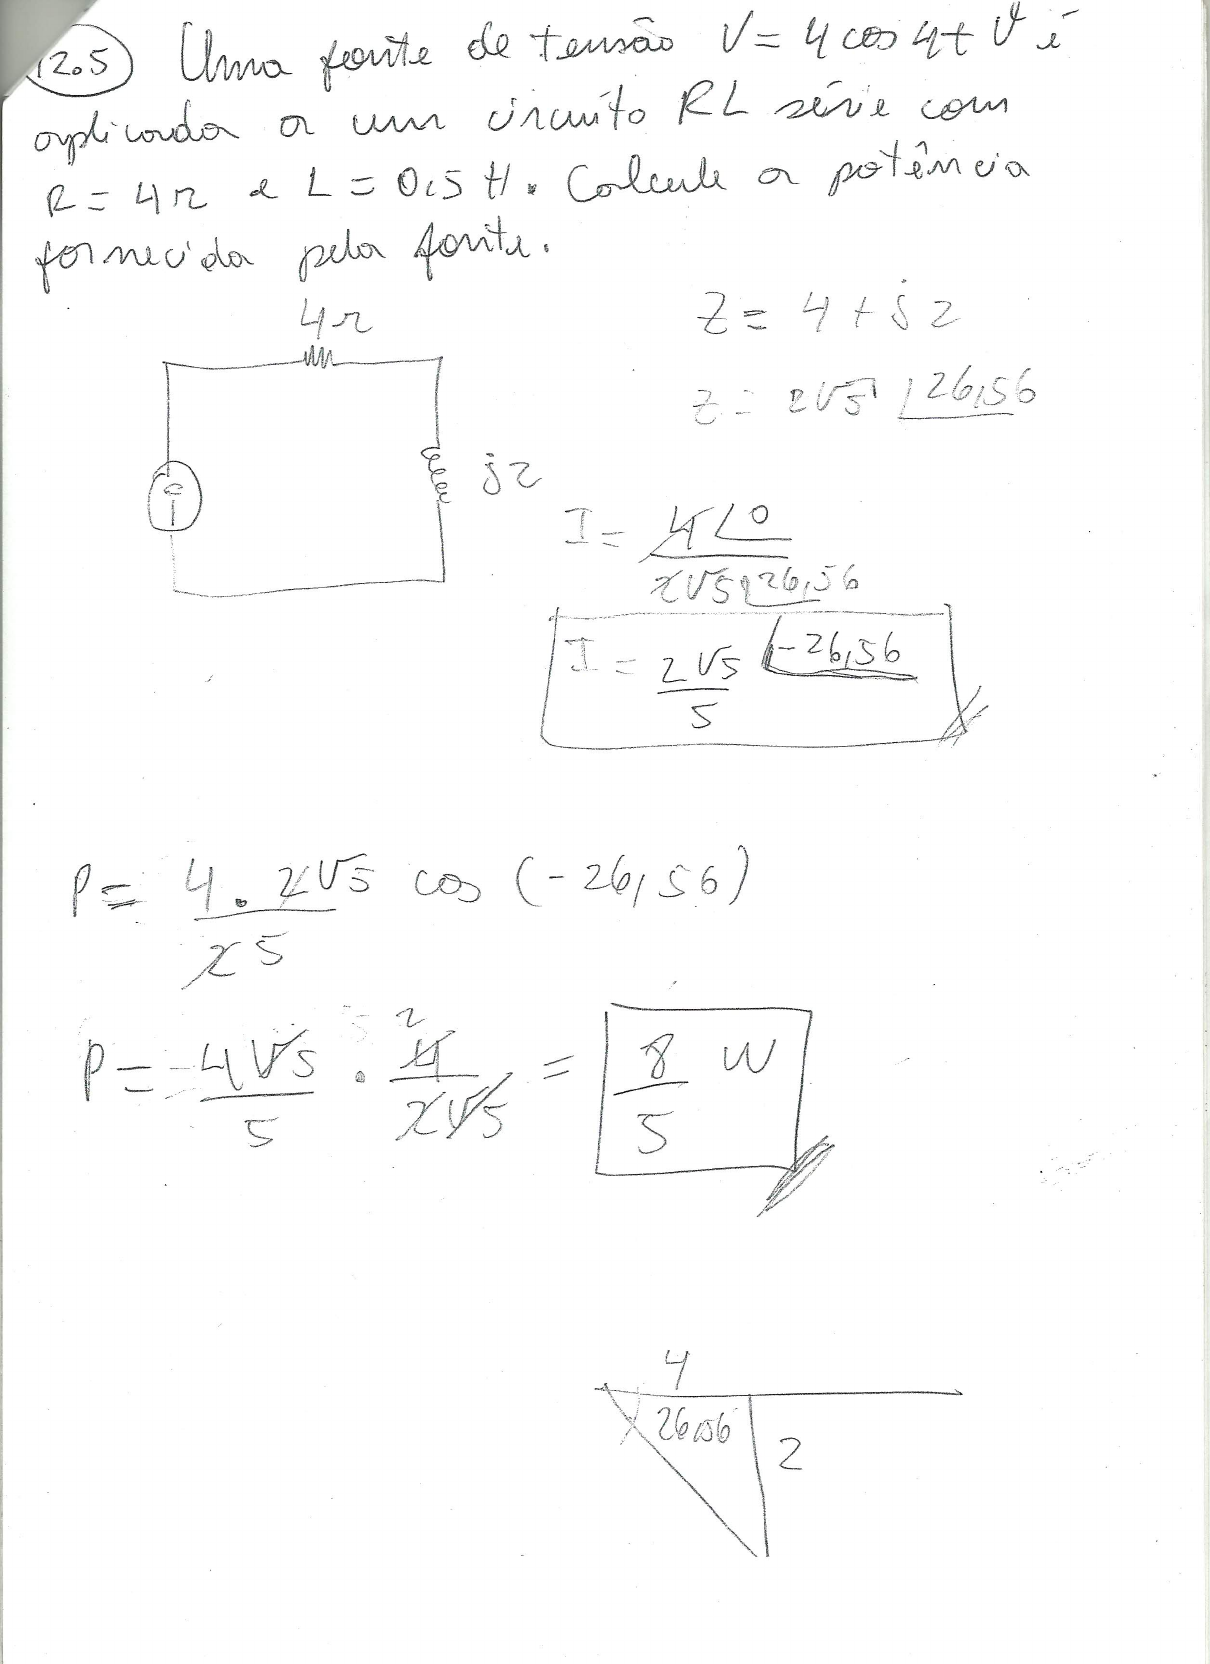 12.5 Uma fonte de tensão V = 4 cos 4t V é
aplicada a um circuito RL série com
R = 4Ω e L = 0,5 H. Calcule a potência
fornecida pela fonte.
4Ω
j2
Z = 4 + j2
Z = 2√5 ∠26,56
I = 4∠0 / 2√5 ∠26,56
I = 2√5/5 ∠-26,56
P = 4 . 2√5 / 2 5 cos (-26,56)
P = 4√5/5 . 4/2√5 2 = 8/5 W
4
26,56
2